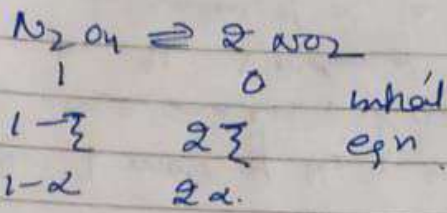 N₂O₄ ⇌ 2 NO₂
1 0 initial
1-ξ 2ξ eqn
1-α 2α.